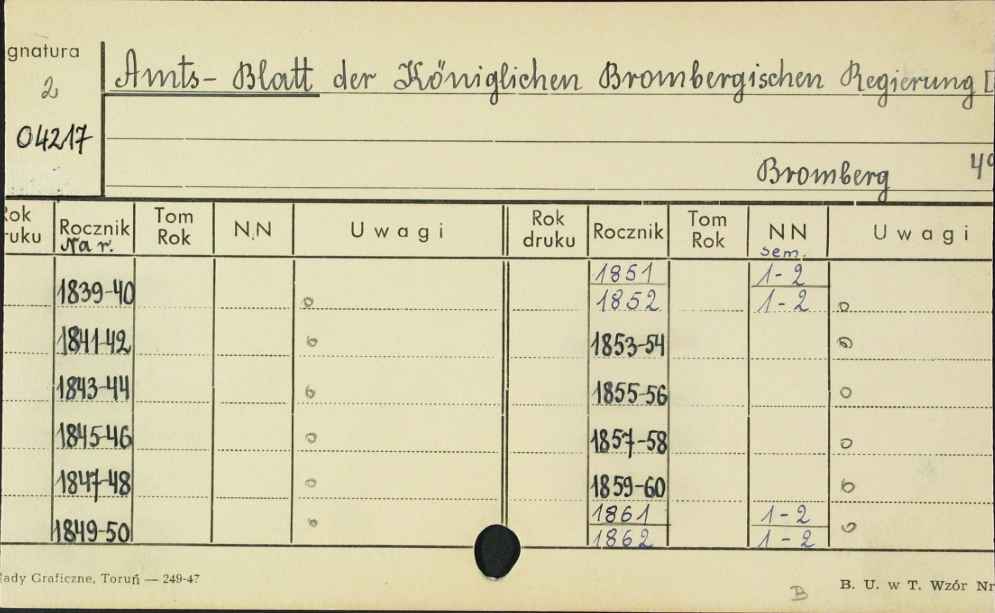 gnatura
2
04217
Amts-Blatt der Königlichen Brombergischen Regierung [
Bromberg 4°
Rok druku Rocznik Na r. Tom Rok N.N Uwagi Rok druku Rocznik Tom Rok NN sem. Uwagi
1839-40 o 1851 1-2
1852 1-2 o
1841-42 o 1853-54 o
1843-44 o 1855-56 o
1845-46 o 1857-58 o
1847-48 o 1859-60 o
1849-50 o 1861 1-2 o
1862 1-2
łady Graficzne, Toruń — 249-47
B
B. U. w T. Wzór Nr